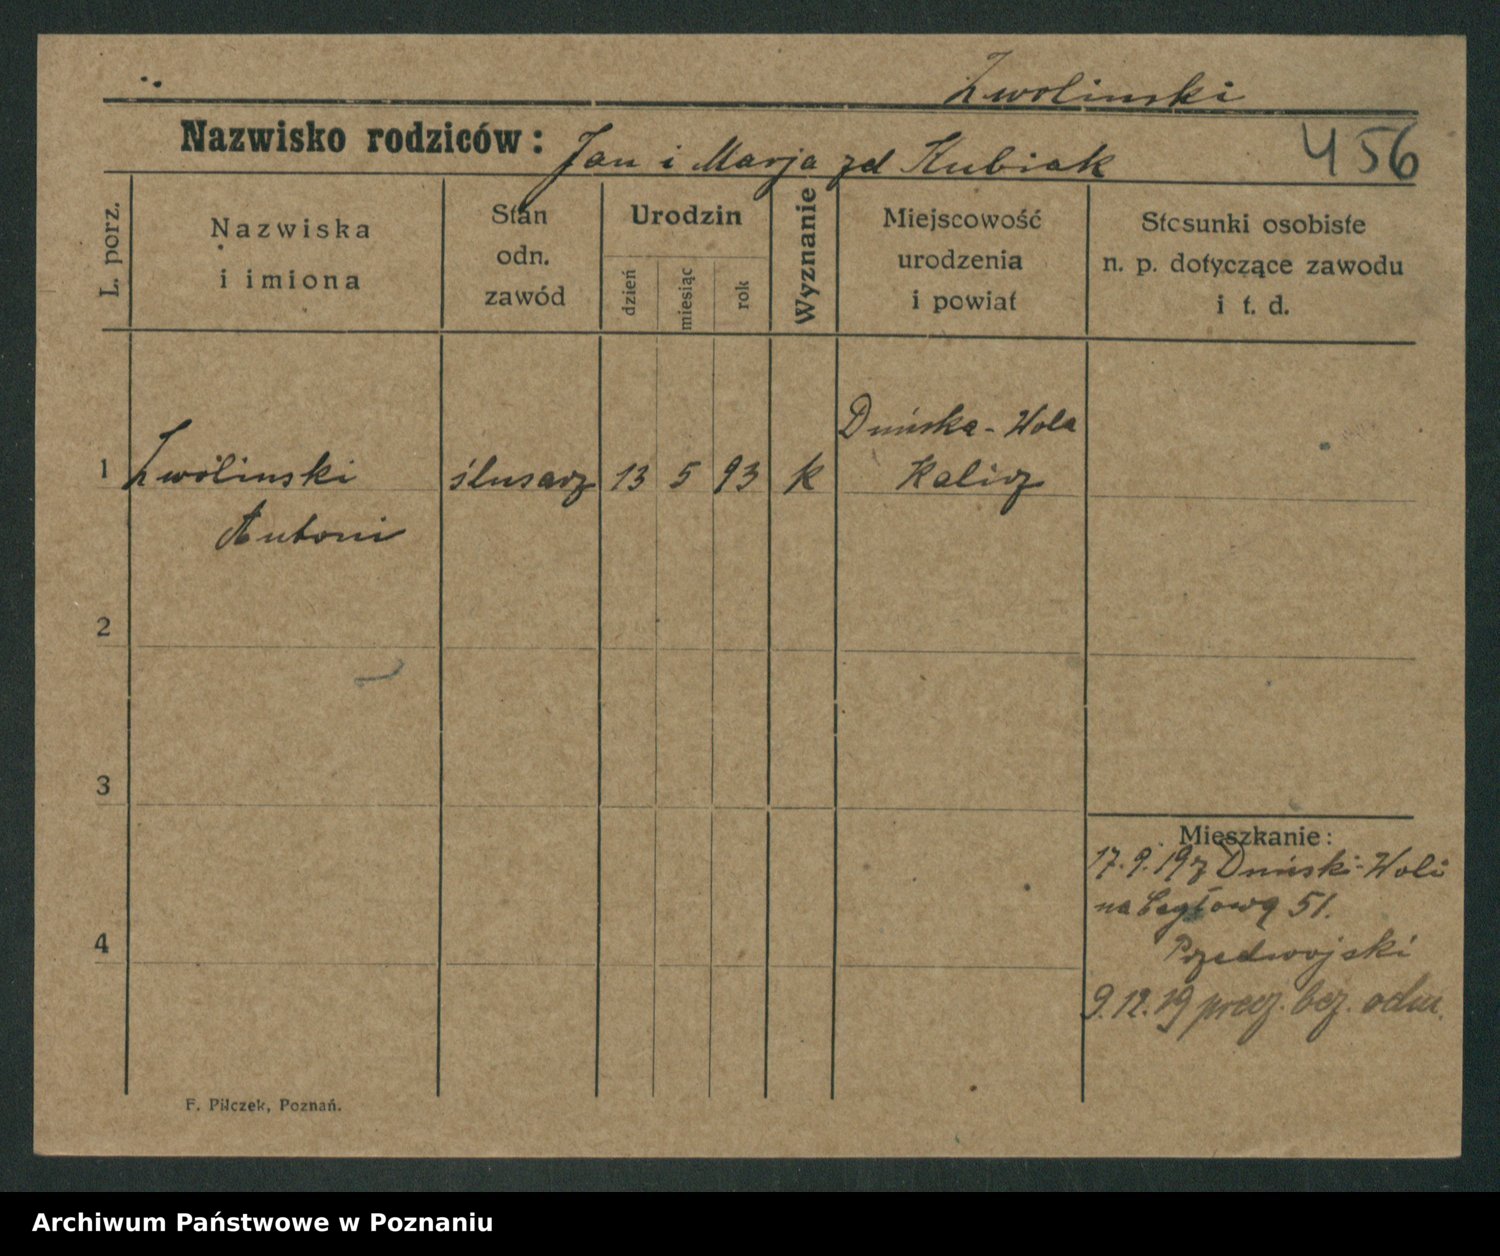 Zwolinski
Nazwisko rodziców: Jan i Marja zd Kubiak
456
L. porz.
Nazwiska
i imiona
Stan
odn.
zawód
Urodzin
dzień
miesiąc
rok
Wyznanie
Miejscowość
urodzenia
i powiat
Stosunki osobiste
n. p. dotyczące zawodu
i t. d.
1
Zwolinski
Antoni
ślusarz
13
5
93
k
Duńska-Wola
Kalisz
2
3
4
Mieszkanie:
17.9.19 z Duński-Woli
na 51.
Przedwojski
9.12.19 bez.
F. Pilczek, Poznań.
Archiwum Państwowe w Poznaniu